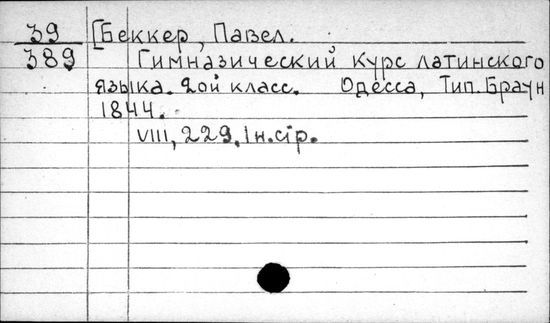 39 [Беккер, Павел.
389 Гимназический курс латинского
языка. 2ой класс. Одесса, Тип. Браун
1844.
VIII, 229. 1 н. стр.